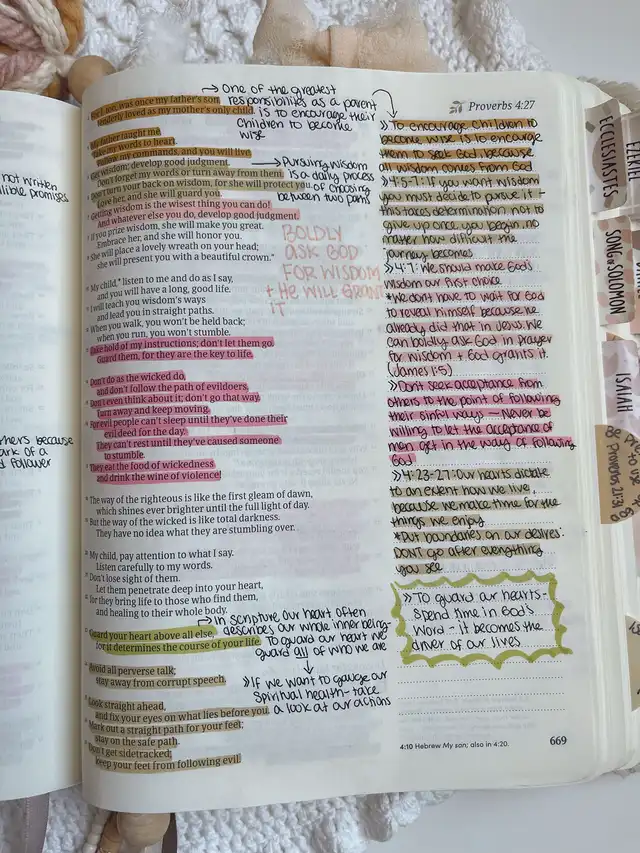 not written
lible promises
hers because
ark of a
d follower
Proverbs 4:27
→ One of the greatest
responsibilities as a parent
is to encourage their
children to become
wise
son, was once my father's son,
tenderly loved as my mother's only child.
My father taught me,
words to heart.
Follow my commands, and you will live.
Get wisdom; develop good judgment.
Don't forget my words or turn away from them.
Don't turn your back on wisdom, for she will protect you.
Love her, and she will guard you.
Getting wisdom is the wisest thing you can do!
And whatever else you do, develop good judgment.
If you prize wisdom, she will make you great.
Embrace her, and she will honor you.
She will place a lovely wreath on your head;
she will present you with a beautiful crown."
→ Pursuing wisdom
is a daily process
of choosing
between two paths
BOLDLY
ASK GOD
FOR WISDOM
+ HE WILL GRANT
IT
My child,* listen to me and do as I say,
and you will have a long, good life.
I will teach you wisdom's ways
and lead you in straight paths.
When you walk, you won't be held back;
when you run, you won't stumble.
Take hold of my instructions; don't let them go.
Guard them, for they are the key to life.
Don't do as the wicked do,
and don't follow the path of evildoers.
Don't even think about it; don't go that way.
Turn away and keep moving.
For evil people can't sleep until they've done their
evil deed for the day.
They can't rest until they've caused someone
to stumble.
They eat the food of wickedness
and drink the wine of violence!
The way of the righteous is like the first gleam of dawn,
which shines ever brighter until the full light of day.
But the way of the wicked is like total darkness.
They have no idea what they are stumbling over.
My child, pay attention to what I say.
Listen carefully to my words.
Don't lose sight of them.
Let them penetrate deep into your heart,
for they bring life to those who find them,
and healing to their whole body.
Guard your heart above all else,
for it determines the course of your life.
→ In scripture our heart often
describes our whole inner being-
To guard our heart we
guard all of who we are
↓
» If we want to gauge our
spiritual health- take
a look at our actions
Avoid all perverse talk;
stay away from corrupt speech.
Look straight ahead,
and fix your eyes on what lies before you.
Mark out a straight path for your feet;
stay on the safe path.
Don't get sidetracked;
keep your feet from following evil.
» To encourage children to
become wise is to encourage
them to seek God, because
all wisdom comes from God
» 4:5-7: If you want wisdom
you must decide to pursue it -
this takes determination not to
give up once you begin, no
matter how difficult the
journey becomes
» 4:7: We should make God's
wisdom our first choice
*We don't have to wait for God
to reveal himself because he
already did that in Jesus. We
can boldly ask God in prayer
for wisdom + God grants it.
(James 1:5)
» Don't seek acceptance from
others to the point of following
their sinful ways — Never be
willing to let the acceptance of
men get in the way of following
God
» 4:23-27: Our hearts dictate
to an extent how we live,
because we make time for the
things we enjoy
*Put boundaries on our desires:
DONT go after everything
you see
» To guard our hearts-
spend time in God's
Word - it becomes the
driver of our lives
4:10 Hebrew My son; also in 4:20.
669
ECCLESIASTES
SONG of SOLOMON
ISAIAH
EZEKIEL
Proverbs 21:31